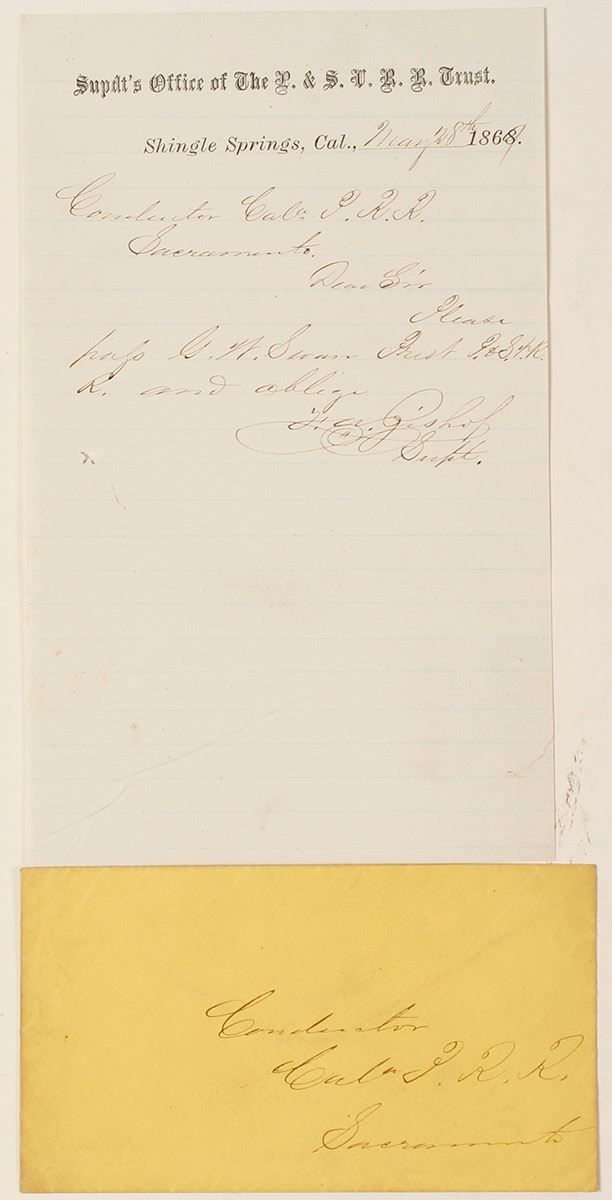 Supdt's Office of The P. & S. V. R. R. Trust.
Shingle Springs, Cal., May 28th 1869.
Conductor Cala P. R. R.
Sacramento.
Dear Sir
Please
pass G. W. Swan Prest P. & S. V. R.
R. and oblige
F. A. Bishop
Supt.
Conductor
Cala P. R. R.
Sacramento